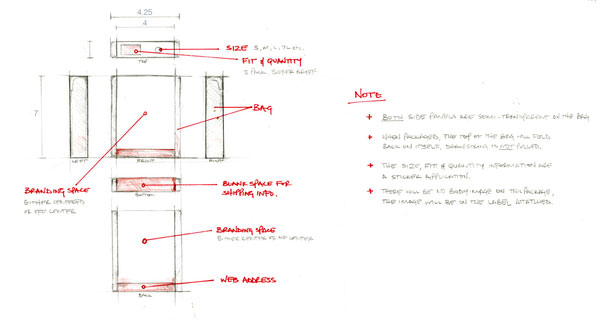 4.25
4
SIZE S, M, L, XL etc.
TOP
FIT & QUANTITY
3 PACK BOXER BRIEF
7
BAG
LEFT
FRONT
RIGHT
BRANDING SPACE
EITHER CENTERED
OR NOT CENTER
BLANK SPACE FOR
SHIPPING INFO.
BOTTOM
BRANDING SPACE
EITHER CENTER OR NO CENTER
WEB ADDRESS
BACK
NOTE
+ BOTH SIDE PANELS ARE SEMI-TRANSPARENT ON THE BAG
+ WHEN PACKAGED, THE TOP OF THE BAG WILL FOLD
BACK ON ITSELF, DRAWSTRING IS NOT PULLED.
+ THE SIZE, FIT & QUANTITY INFORMATION ARE
A STICKER APPLICATION.
+ THERE WILL BE NO BODY IMAGE ON THIS PACKAGE,
THE IMAGE WILL BE ON THE LABEL ATTATCHED.